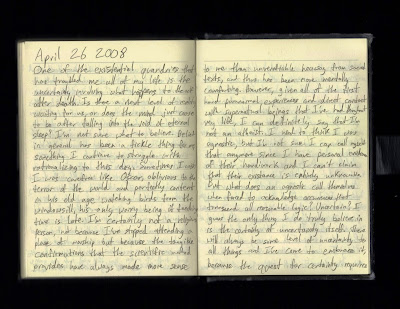 April 26 2008
One of the existential quandries that
has troubled me all of my life is the
uncertainty involving what happens to the self
after death. Is there a next level of reality
waiting for us, or does the mind just cease
to be after falling into the void of eternal
sleep? I'm not sure what to believe. Belief
in general has been a tickle thing to me,
something I continue to struggle with
rationalizing to this day. Sometimes I wish
I was more like Oliver, oblivious to the
terror of the world and perfectly content
in his old age watching birds from the
windowsill, his only worry being if feeding
time is late. I'm certainly not a religious
person, not because I've stopped attending a
place of worship but because the tangible
confirmations that the scientific method
provides have always made more sense
to me than unverifiable hearsay from sacred
texts, and thus has been more mentally
comforting. However, given all of the first
hand paranormal experiences and direct contact
with supernatural beings that I've had throughout
my life, I can definitively say that I'm
not an atheist. I want to think I am
agnostic, but I'm not sure I can call myself
that anymore since I have personal evidence
of their handiwork and I can't claim
that their existence is entirely unknowable.
But what does an agnostic call themselves
when forced to acknowledge occurrences that
transcend all reasonable logic? Uncertain? I
guess the only thing I do truly believe in
is the certainty of uncertainty itself. There
will always be some level of uncertainty to
all things and I've come to embrace it,
because the quest for certainty requires